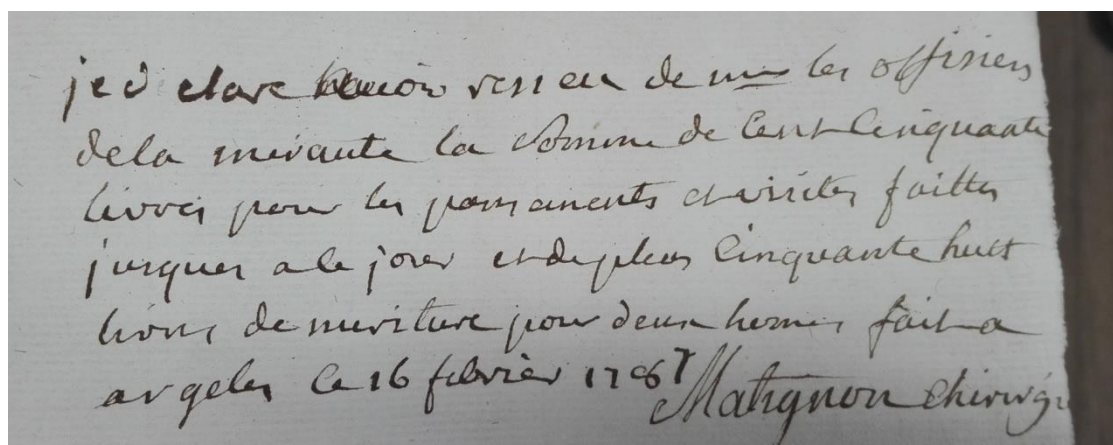 je déclare avoir resseu de mrs les offisiers
dela mirante la somme de cent cinquante
livres pour les pansements et visites faittes
jusques a le jour et de plus cinquante huit
livres de nuriture pour deux homes fait a
argeles le 16 febrier
Matignon chirurg